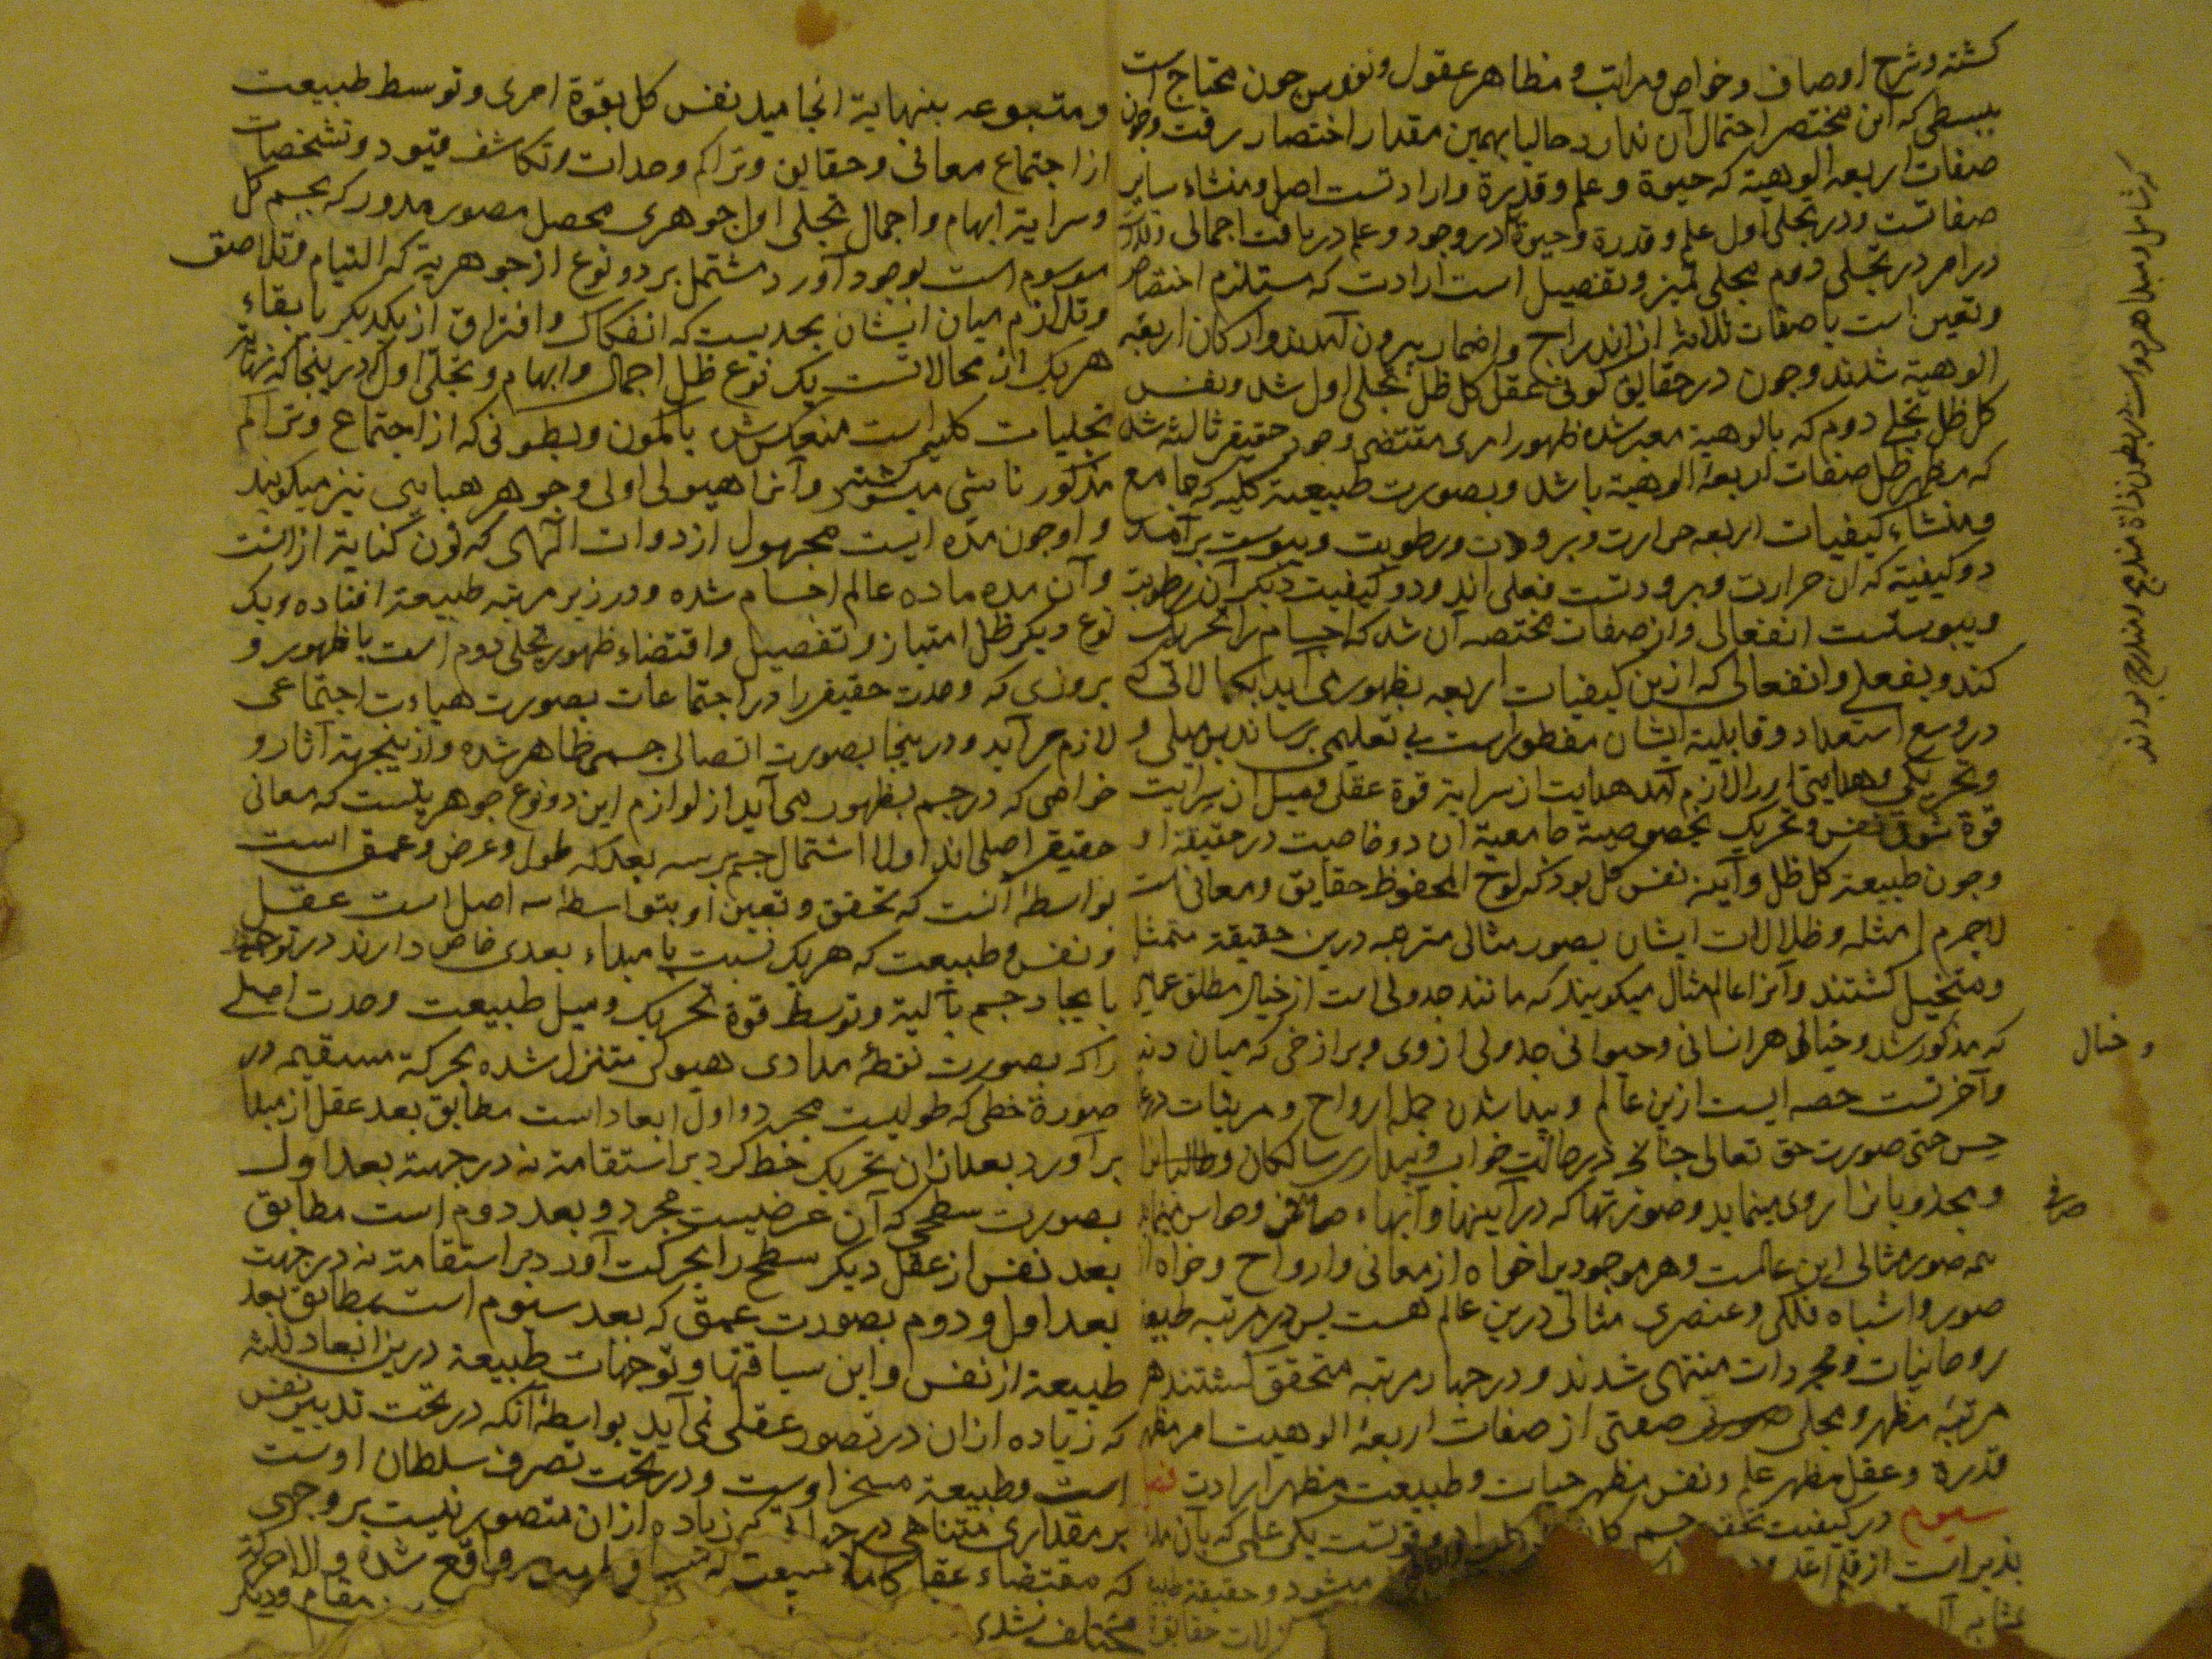 کشته و شرح اوصاف و خواص و مراتب و مظاهر عقول و نفوس چون محتاج است
ببسطی که این مختصر احتمال آن ندارد حالیا بهمین مقدار اختصار رفت و چون
صفات اربعه الوهیة که حیوة و علم و قدرة و ارادتست اصل و منشاء سایر
صفاتست و در تجلی اول علم و قدرة و حیوة در وجود و علم دریافت اجمالی
در امر در تجلی دوم مجلی تمیز و تفصیل است ارادت که مستلزم اختصاص
و تعین است با صفات ثلاثه از اندراج و اضمار بیرون آمدند و ارکان اربعه
الوهیة شدند و چون در حقایق کونی عقل کل ظل تجلی اول شد و نفس
کل ظل تجلی دوم که بالوهیة معبر شده ظهور امری مقتضی وجود حقیقة ثالثه شد
که مظهر ظل صفات اربعۀ الوهیة باشد و بصورت طبیعة کلیه که جامع
و منشاء کیفیات اربعه حرارت و برودت و رطوبت و یبوست برآمد
دو کیفیة که ان حرارت و برودتست فعلی اند و دو کیفیت دیگر آن رطوبت
و یبوستست انفعالی و از صفات مختصه آن شد که اجسام را تحریک
کند و بفعلی و انفعالی که ازین کیفیات اربعه بظهور می آید بکمالاتی که
در وسع استعداد و قابلیة ایشان مفطورست بی تعلیمی برساند پس میلی و
و تحریکی و هدایتی او را لازم آمد هدایت از سرایة قوة عقلی و میل از سرایت
قوة شوق نفس و تحریک بخصوصیة جامعیة ان دو خاصیت در حقیقة او
و چون طبیعة کل ظل و آینۀ نفس کل بود که لوح المحفوظ حقایق و معانی است
لاجرم امثله و ظلالات ایشان بصور مثالی مترتبه درین حقیقة متمثل
و متخیل کشتند و آنرا عالم مثال میکویند که مانند جدولی است از خیال مطلق
که مذکور شد و خیالی هر انسانی و حیوانی جدولی از وی و برازخی که میان دنیا
و آخرتست حصه ایست ازین عالم و پیدا شدن جمله ارواح و مرئیات در
حس حتی صورت حق تعالی جنانکه در حالت خواب و بیداری سالکان و طالبان
و مجذوبان را روی مینماید و صورتها که در آیینها و آبهاء صافی و حواس
همه صور مثالی این عالمست و هر موجود را خواه از معانی و ارواح و خواه از
صور و اشباه فلکی و عنصری مثالی درین عالم هست پس در مرتبه طبیعة
روحانیات و مجردات منتهی شدند و در چهار مرتبه متحقق کشتند هر
مرتبۀ مظهر و مجلی صفتی از صفات اربعۀ الوهیت امر مظهر
قدرة و عقل مظهر علم و نفس مظهر حیات و طبیعت مظهر ارادت
سیوم در کیفیت تحقق جسم
پذیر است از قلم
و متبوعه بنهایة انجامید نفس کل بقوة امری و توسط طبیعت
از اجتماع معانی و حقایق و تراکم وحدات و تکاشف قیود و تشخصات
و سرایة ابهام و اجمال تجلی اول جوهری محصل مصور مدور که بجسم کل
موسوم است بوجود آورد مشتمل بر دو نوع از جوهریة که التیام و تلاصق
و تلازم میان ایشان بحدیست که انفکاک و افتراق از یکدیگر با بقاء
هر یک از محالاتست یک نوع ظل اجمال و ابهام و تجلی اول درینجا که نهایة
تجلیات کلیه است منعکس شده بکمون و بطونی که از اجتماع و تراکم
مذکور ناشی میشود و آنرا هیولی اولی و جوهر هبایی نیز میکویند
و او چون مده ایست مجهول از دوات الهی که نون کنایة از انست
و آن مده ماده عالم اجسام شده و در زیر مرتبه طبیعة افتاده و یک
نوع دیگر ظل امتیاز و تفصیل و اقتضاء ظهور تجلی دوم است با ظهور و
بروزی که وحدت حقیقی را در اجتماعات بصورت هیاءت اجتماعی
لازم مرآید و درینجا بصورت اتصالی جسمی ظاهر شده و ازینجهة آثار و
خواصی که در جسم بظهور می آید از لوازم این دو نوع جوهریتست که معانی
حقیقی اصلی اند اولا اشتمال جسم بر سه بعد که طول و عرض و عمق است
بواسطۀ آنست که تحقق و تعین او بتواسطۀ سه اصل است عقل
و نفس و طبیعت که هر یک نسبت با مبداء بعدی خاص دارند در توجه
بایجاد جسم بآلیة و توسط قوة تحریک و میل طبیعت وحدت اصلی
را که بصورت نقطۀ مدادی هیولی متنزل شده بحرکة مستقیمه در
صورة خطی که طولیست مجرد و اول ابعاد است مطابق بعد عقل از مبدا
برآورد بعد از ان تحریک خط کرد بر استقامة نه در جهة بعد اول
بصورت سطحی که آن عرضیست مجرد و بعد دوم است مطابق
بعد نفس از عقل دیگر سطح را بحرکت آورد بر استقامة نه در جهت
بعد اول و دوم بصورت عمق که بعد سیوم است مطابق بعد
طبیعة از نفس و این سیاقتها و توجهات طبیعة درین ابعاد ثلثه
که زیاده از ان در تصور عقلی نمی آید بواسطۀ آنکه در تحت تدبیر نفس
است و طبیعة مسخر اوست و در تحت تصرف سلطان اوست
بر مقداری متناهی که زیاده از ان متصور نیست بر وجهی
که مقتضاء عقل واقع شده
مختلف شده
و خیال